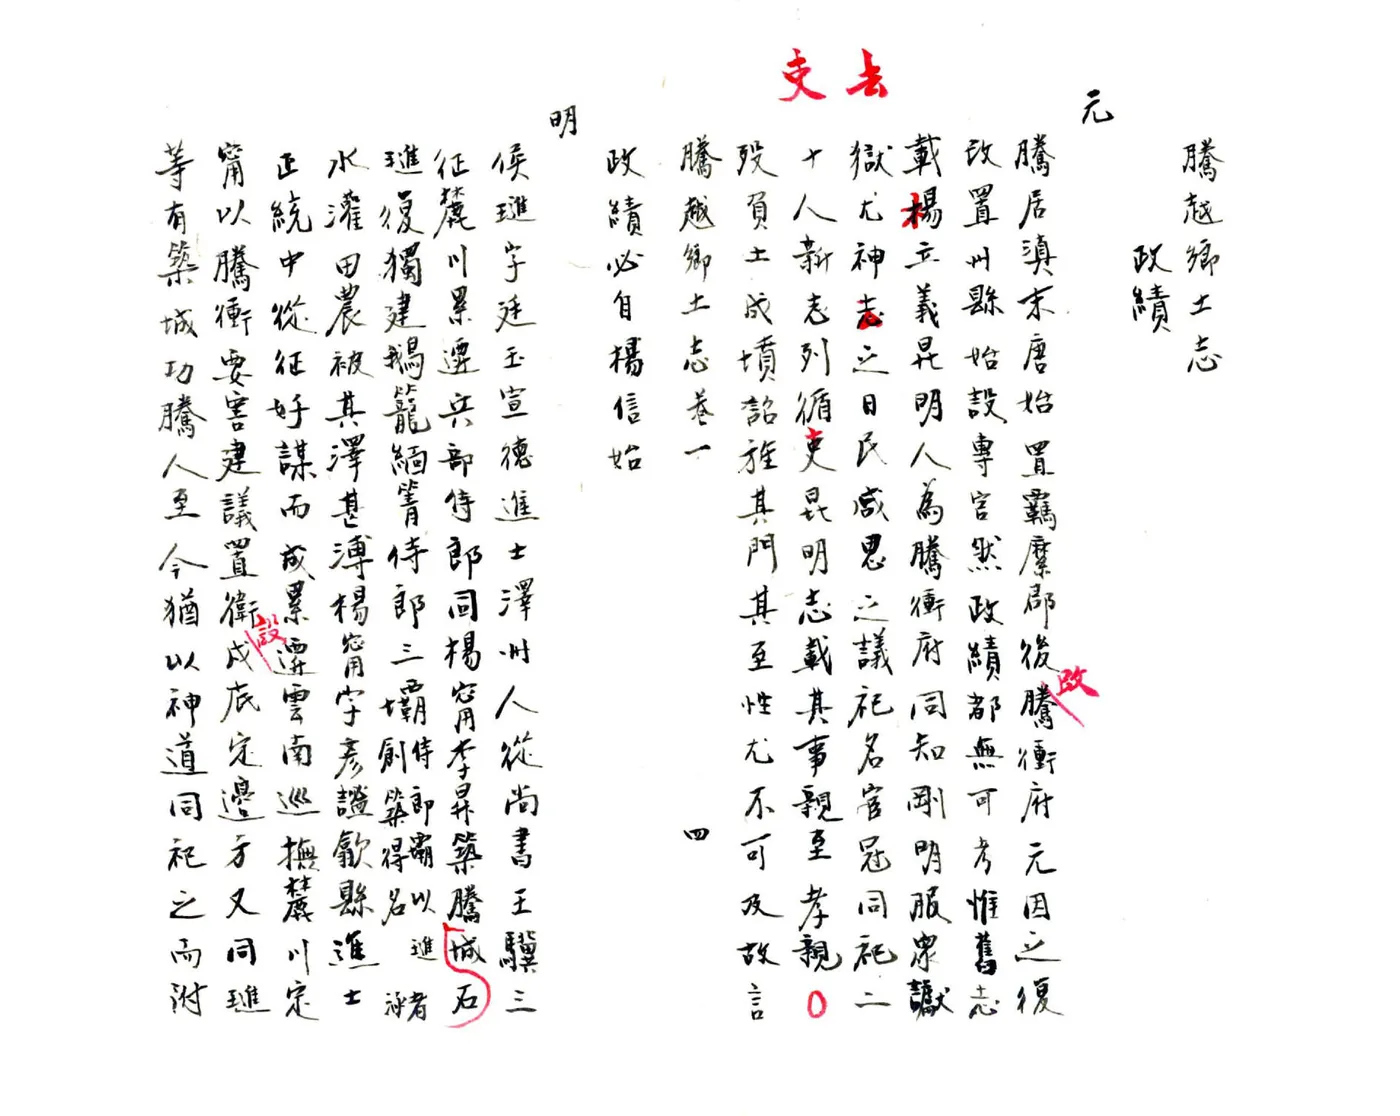 騰越鄉土志
政績
元
騰居滇末唐始置羈縻郡後改騰衝府元因之復
改置州縣始設專官然政績都無可考惟舊志
載楊立義昆明人為騰衝府同知剛明服眾讞
獄尤神去之日民咸思之議祀名宦冠同祀二
十人新志列循吏昆明志載其事親至孝親
歿負土成墳詔旌其門其至性尤不可及故言
去
吏
騰越鄉土志卷一
四
政績必自楊信始
明
侯璡字廷玉宣德進士澤州人從尚書王驥三
征麓川累遷兵部侍郎同楊甯李昇築騰城石
璡復獨建鵝籠緬箐侍郎三壩侍郎壩以璡創築得名
水灌田農被其澤甚溥楊甯字彥謐歙縣進士
正統中從征好謀而成累遷雲南巡撫麓川定
甯以騰衝要害建議置衛設戍底定邊方又同璡
等有築城功騰人至今猶以神道同祀之而附